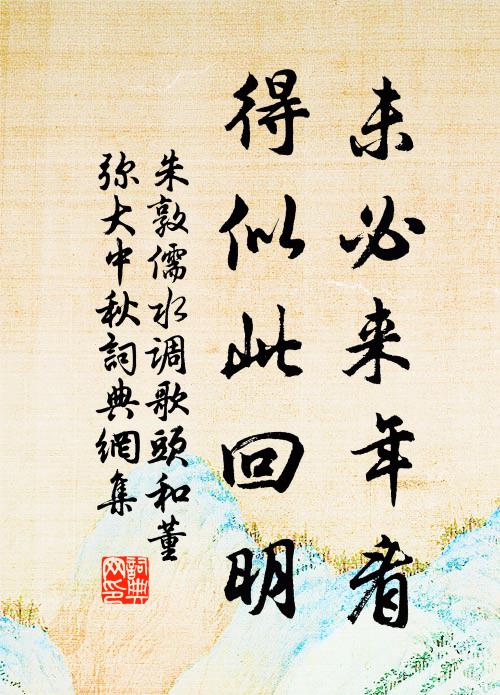 未必来年看
得似此回明
朱敦儒水调歌頭和董
弥大中秋詞典網集
詞典
网印